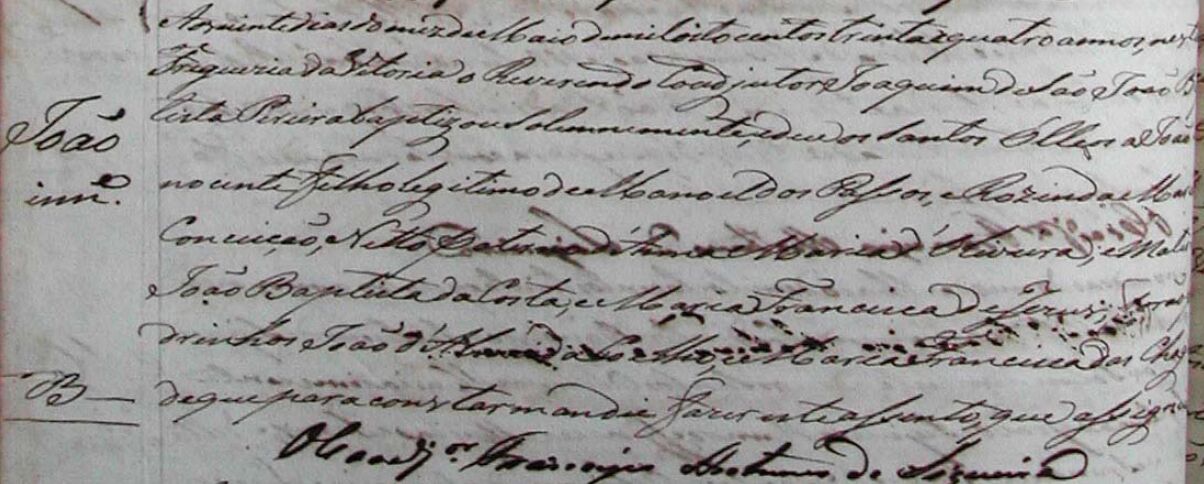 Aos vinte dias do mez de Maio de mil oito centos trinta e quatro annos, nest
Fregueria da Vitoria o Reverendo Coadjutor Joaquim de São João B
João
tista Pereira baptizou solemnemente, e deu os Santos Olleos a João
inn.e
nocente filho legitimo de Manoel dos Passos, e Rozinda Ma
Conceição, Netto Paterno de Anna Maria d'Oliveira, e Mat
João Baptista da Costa, e Maria Francisca de Jezus;
drinhos João d'Almeida Coelho, e Maria Francisca das Cha
B
de que para constar mandei fazer este assento, que assign
O Coadj.or Antunes de Siqueira